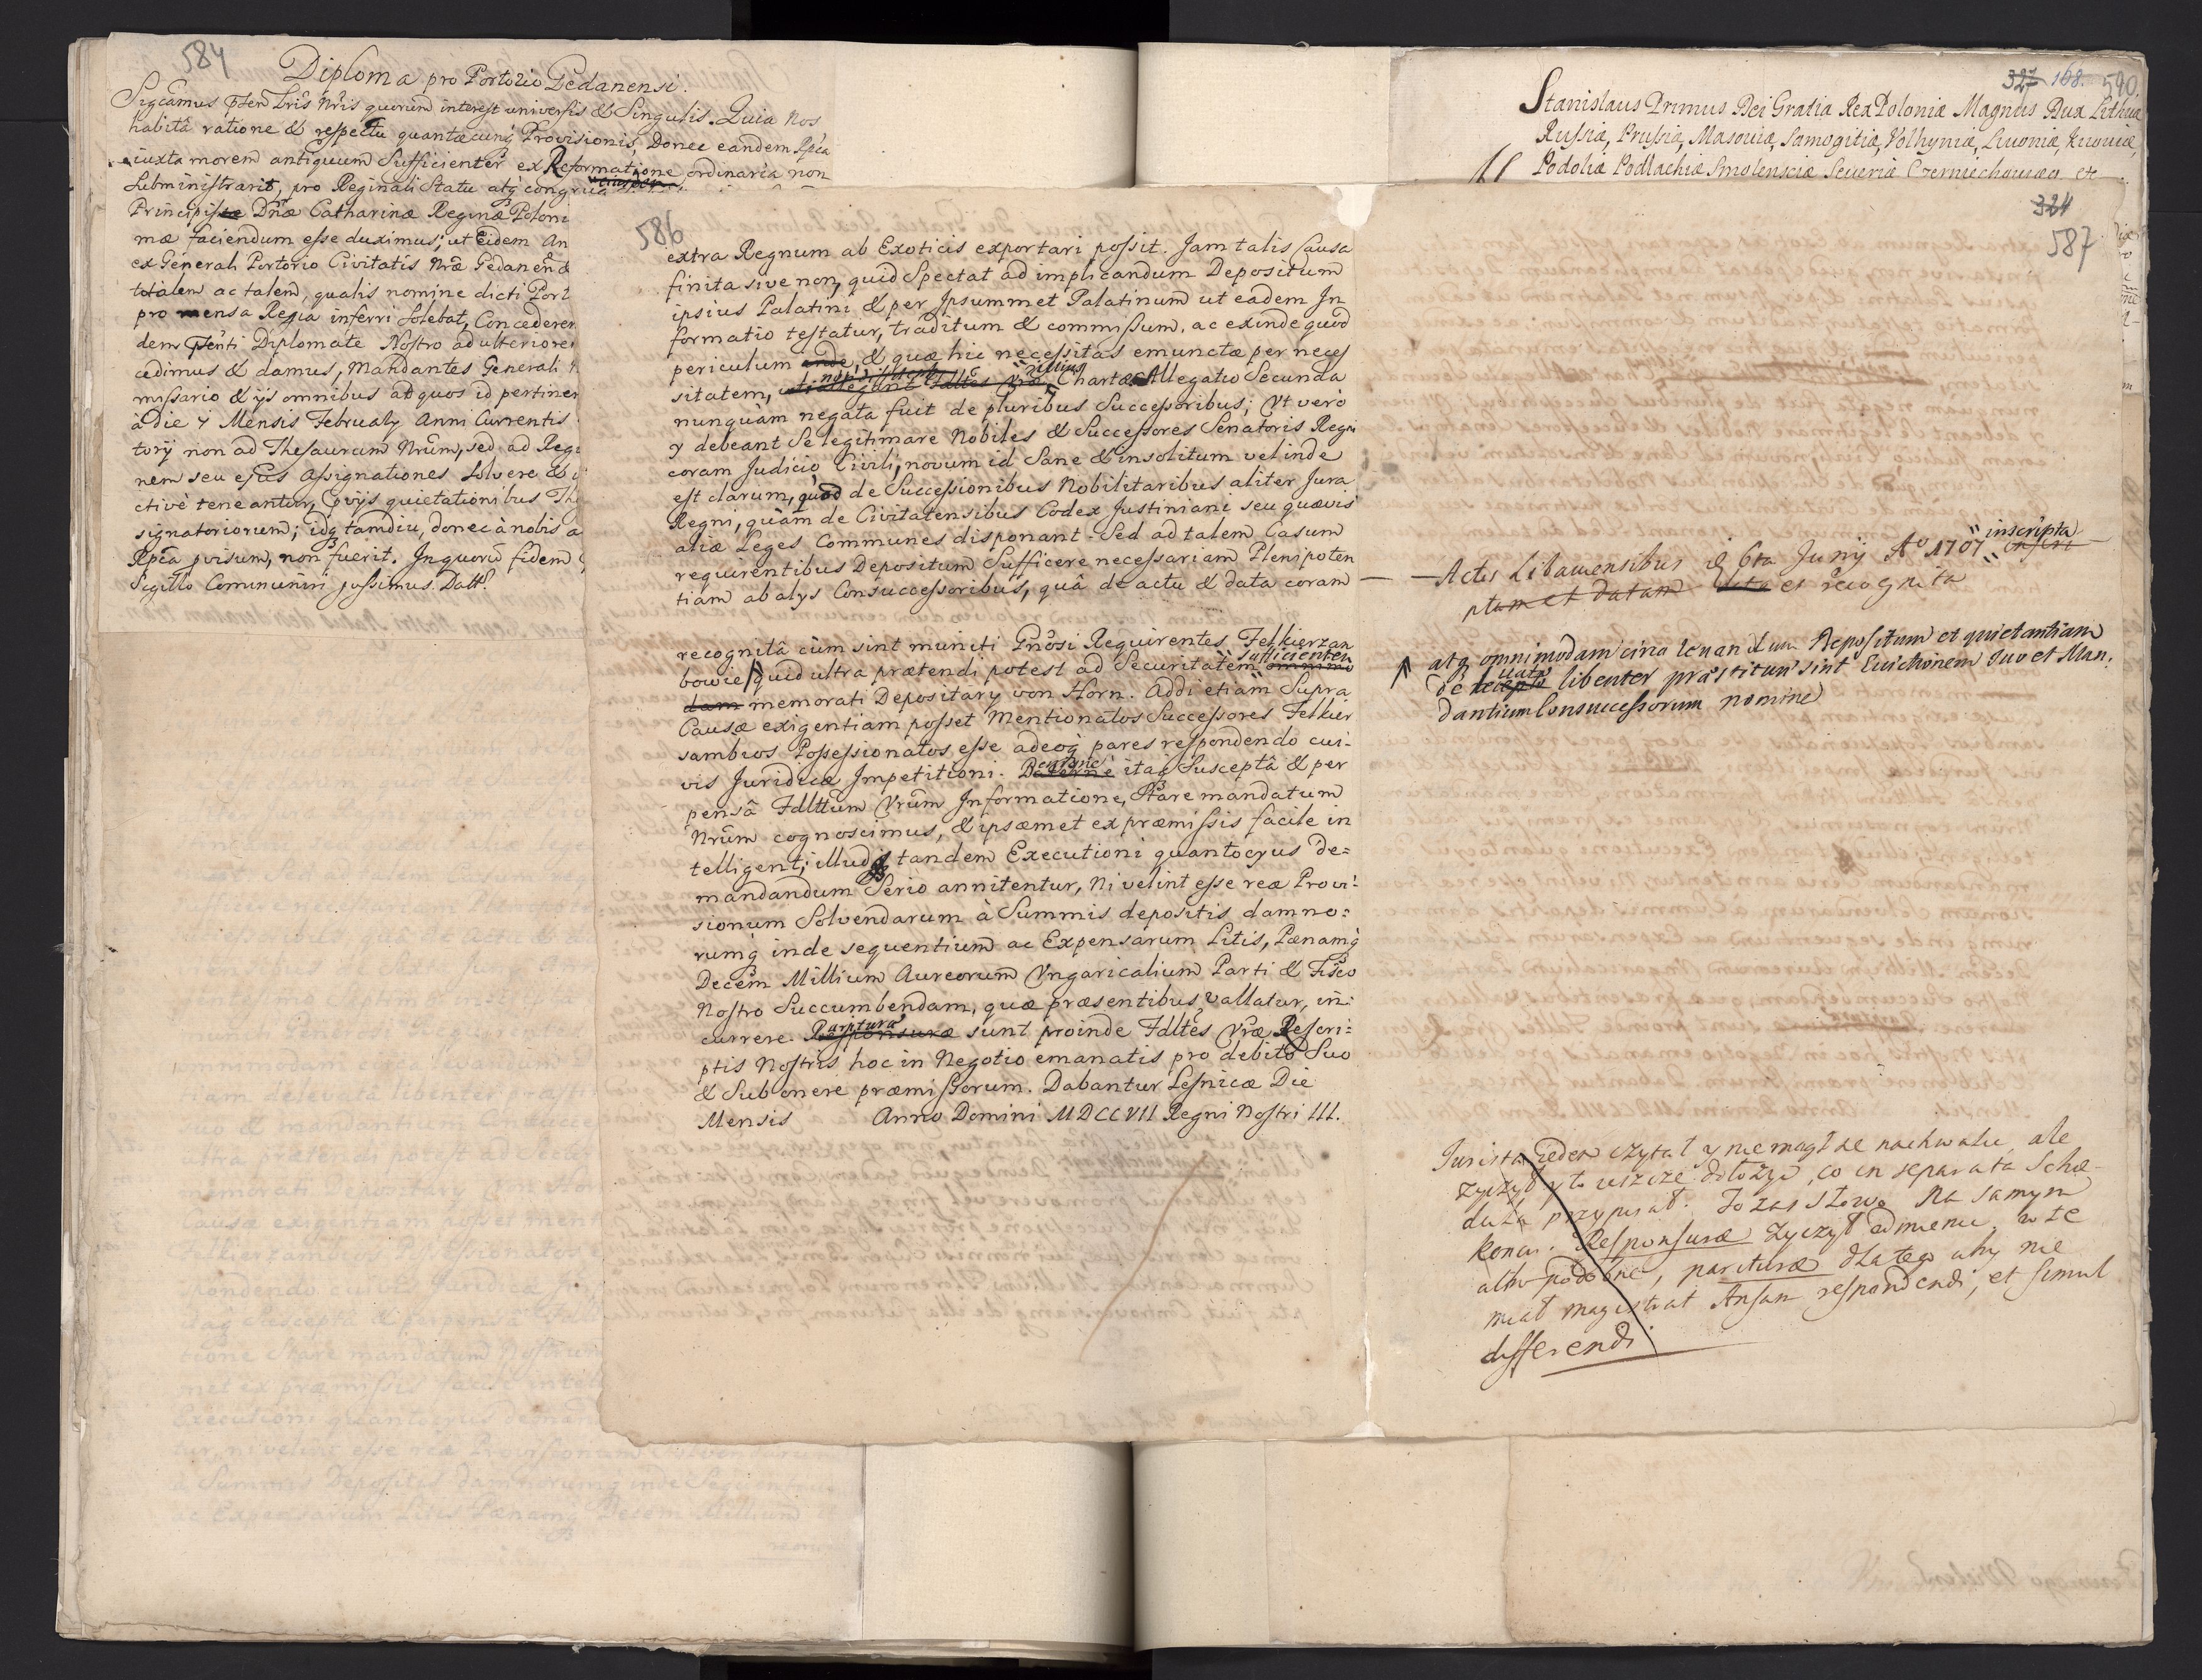 584
Diploma pro Portorio Gedanensi.
Sigcamus pnten Lris Nris quorum interest universis & Singulis. Quia Nos
habitâ ratione & respectu quantæcunq Provisionis, Donec eandem Rpca
iuxta morem antiquum Sufficienter ex Reformatione ordinaria non
Subministrarit, pro Reginali Statu atq congruâ
Principissæ Dnæ Catharinæ Reginæ Poloni
mæ faciendum esse duximus; ut Eidem An
ex Generali Portorio Civitatis Nræ Gedanen
totalem ac talem, qualis nomine dicti Port
pro mensa Regia inferri solebat, Concederem
dem Pnti Diplomate Nostro ad ulteriore
cedimus & damus, Mandantes Generali
missario & ijs omnibus ad quos id pertinet
à die 7 Mensis February Anni Currentis
torij non ad Thesaurum Nrum, sed ad Regi
nem seu ejus Assignationes Solvere &
ctivè teneantur, quietationibus The
signatoriorum; idq tamdiu, donec à nobis a
Rpca provisum, non fuerit. In quorum fidem
Sigillo Communiri jussimus. Datt.
586
extra Regnum ab Exoticis exportari possit. Jam talis Causa
finita sive non, quid Spectat ad implicandum Depositum
ipsius Palatini & per Ipsummet Palatinum ut eadem In
formatio testatur, traditum & commissum. ac exinde quod
periculum unde, & quæ hic necessitas emunctæ per neces
sitatem, uti allegant Fdltes Vræ illius Chartæ Allegatio Secunda
nunquàm negata fuit de pluribus Successoribus; Ut verò
y debeant Se legitimare Nobiles & Successores Senatoris Regni
coram Judicio Civili, novum id Sane & insolitum vel inde
est clarum, quod de Successionibus Nobilitaribus aliter Jura
Regni, quàm de Civitatensibus Codex Justiniani seu quævis
aliæ Leges Communes disponant. Sed ad talem Casum
requirentibus Depositum Sufficere necessariam Plenipoten
tiam ab alys Consuccessoribus, quâ de actu & data coram
recognitâ cùm sint muniti Gnosi Requirentes Felkierzan
bowie quid ultra prætendi potest ad Securitatem sufficientem omnimo
dam memorati Depositary von Horn. Addi etiam Supra
Causæ exigentiam posset Mentionatos Successores Felkier
sambios Possessionatos esse adeoq pares respondendo cui-
vis Juridicæ Impetitioni. itaq Susceptâ & per
pensâ Fdlttum Vrum Informatione, Stare mandatum
Nrum cognoscimus, & ipsæmet ex præmissis facile in
telligent; illudq tandem Executioni quantocyus de=
mandandum Serio annitentur, Ni velint esse reæ Provi=
sionum Solvendarum à Summis depositis damno=
rumq inde sequentium ac Expensarum Litis, Pænamq
Decem Millium Aureorum Vngaricalium Parti & Fisco
Nostro Succumbendam, quæ præsentibus vallatur, in=
currere. Responsuræ parituræ sunt proinde Fdltes Vræ Rescri=
ptis Nostris hoc in Negotio emanatis pro debito Suo
& Sub onere præmissorum. Dabantur Lesnicæ Die
Mensis Anno Domini MDCCVII Regni Nostri III.
327 168. 590.
Stanislaus Primus Dei Gratia Rex Poloniæ Magnus Dux Lithua
Russiæ, Prussiæ, Masoviæ, Samogitiæ, Volhyniæ, Livoniæ, Kijoviæ,
Podoliæ Podlachiæ Smolensciæ Severiæ Czerniechoviæq etc
324
587
Actis Libavensibus 6ta Junij Aº 1707 inscripta
ptam et datam et recognita
atq omnimodam circa levandum Depositum et quietantiam
de libenter præstitum sint Evictionem Suo et Man.
dantium Consuccessorum nomine
Jurista jeden czytał y nie mogł se nachwalic, ale
zyczył y to jeszcze dołożyc, co in separata Sche-
duła przypisał. To zas słowo Na samym
koncu. Responsuræ życzył odmienic, w te
albo podobne, parituræ dlatego aby nie
miał magistrat Ansam respondendi, et simul
differendi